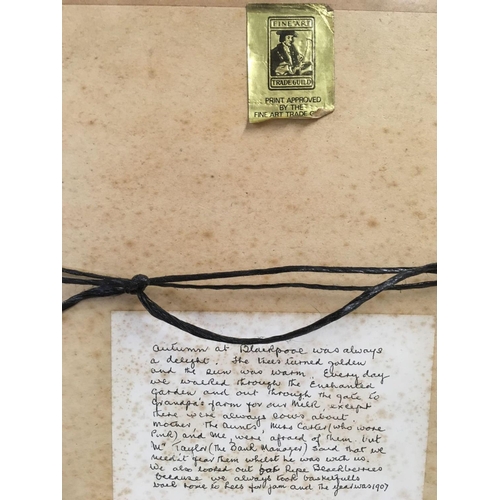 FINE ART
TRADE GUILD
PRINT APPROVED
BY THE
FINE ART TRADE G
Autumn at Blackpool was always
a delight. The trees turned golden
and the sun was warm. Every day
we walked through the Enchanted
Garden and out through the gate to
Grandpa's farm for our Milk, except
there were always cows about
Mother, The Aunts, Miss Carter (who wore
Pink) and Me, were afraid of them. but
Mr Taylor (The Bank Manager) said that we
needn't fear them whilst he was with us.
We also looked out for Ripe Blackberries
because we always took basketfulls
back home to Lees for jam and the year was 1907